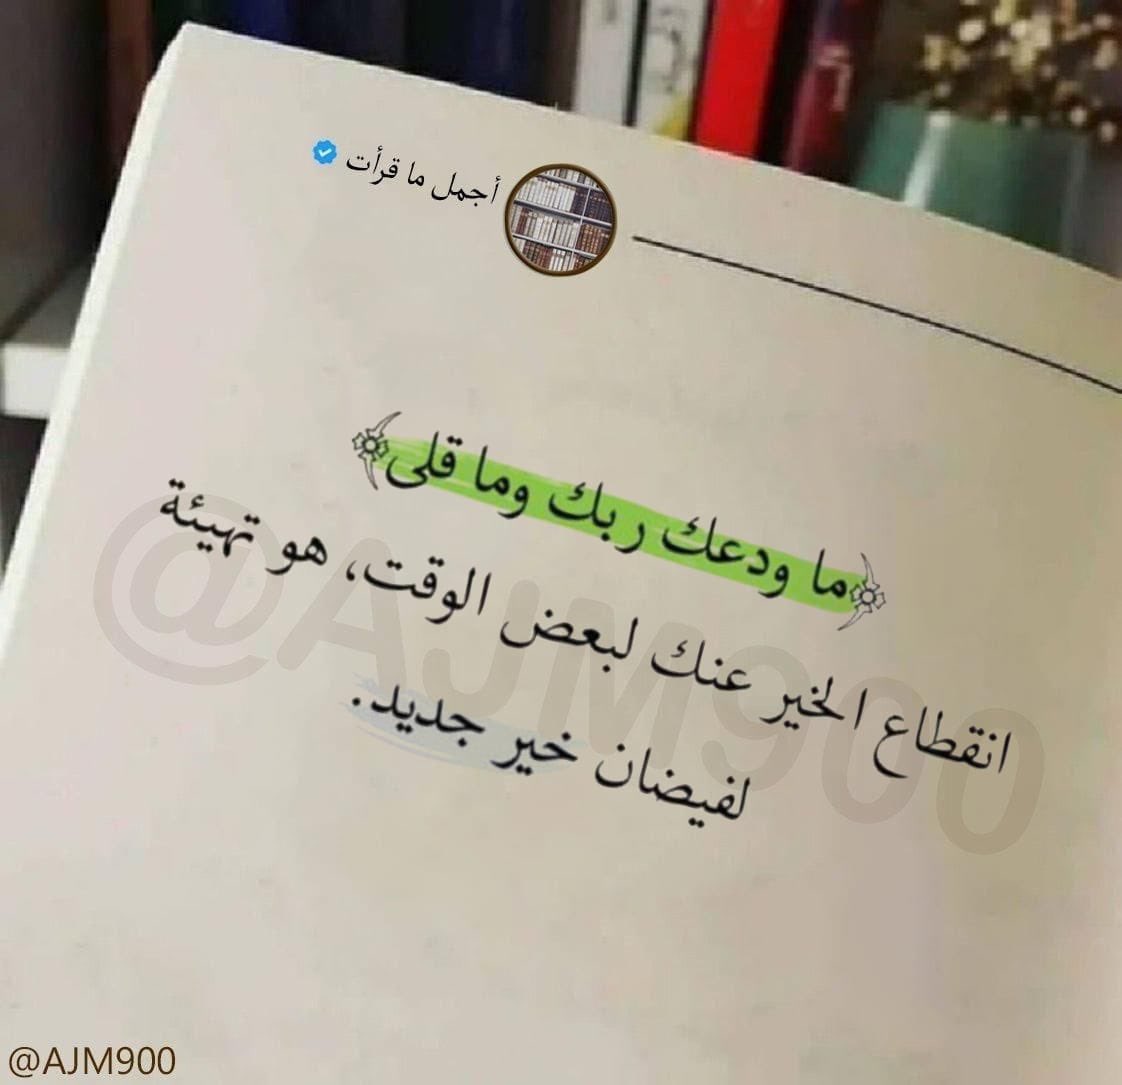 أجمل ما قرأت
﴿ما ودعك ربك وما قلى﴾
انقطاع الخير عنك لبعض الوقت، هو تهيئة
لفيضان خير جديد.
@AJM900
@AJM900